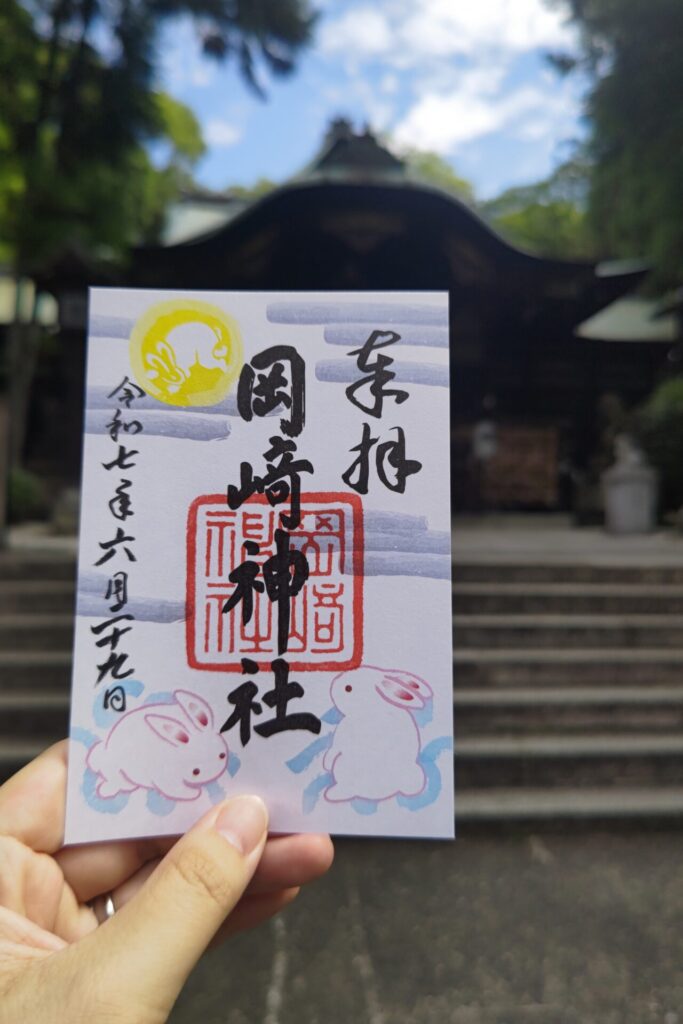 奉拝
岡崎神社
岡崎
神社
令和七年六月二十九日